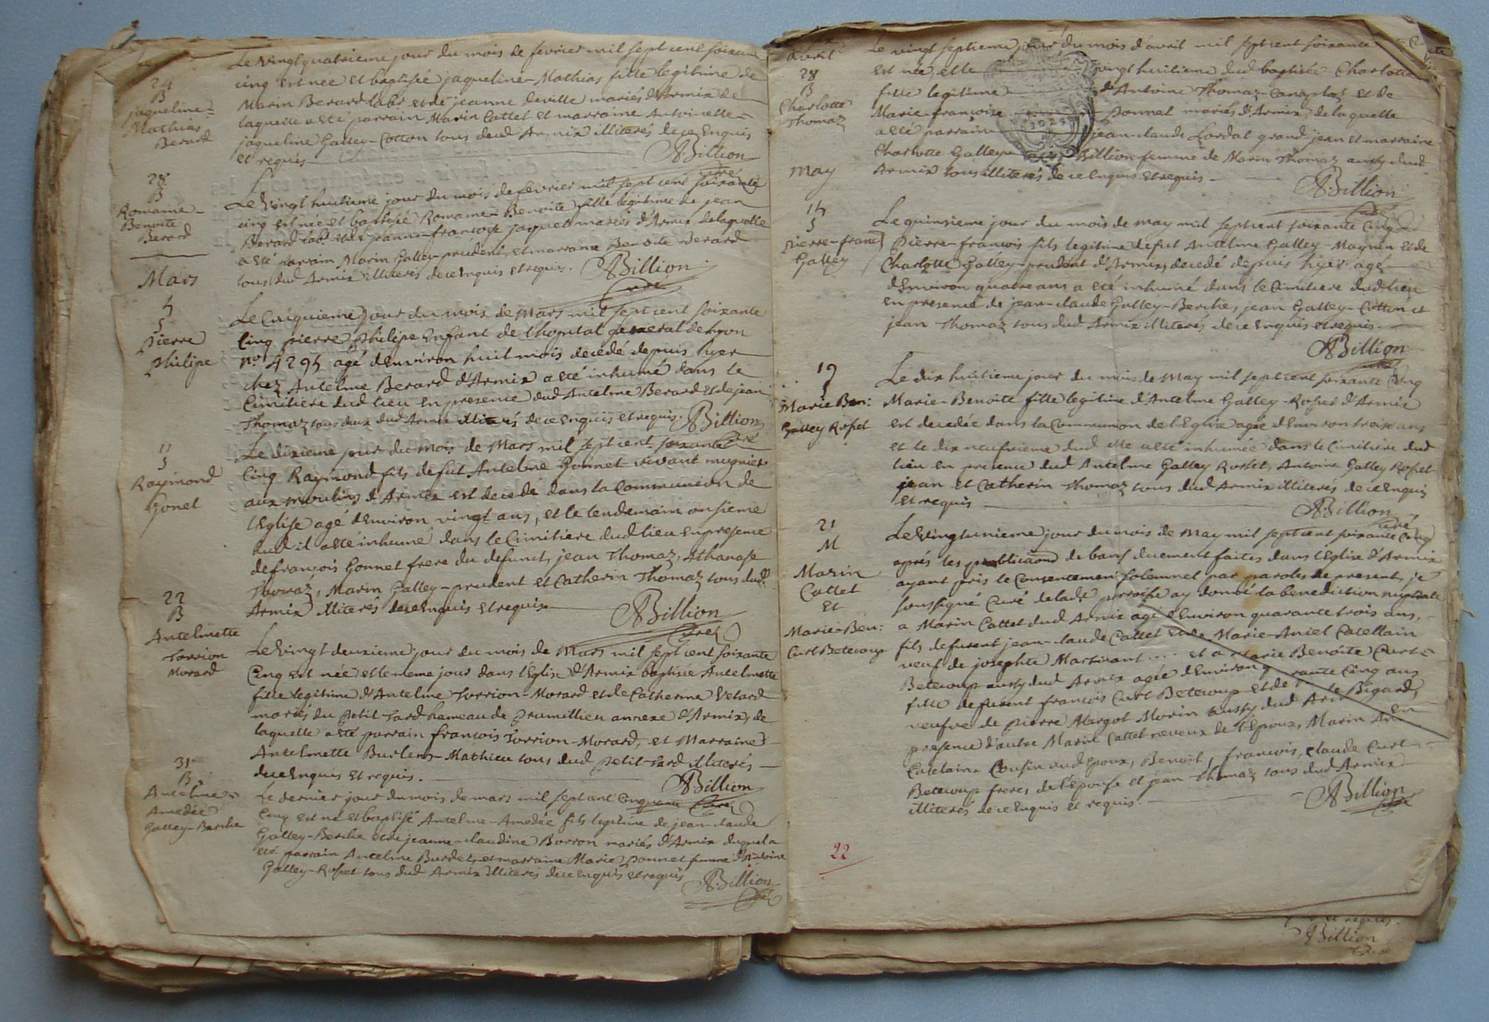 24
B
jaqueline-
Mathias
Berard
Le vingt quatrieme jour du mois de fevrier mil sept cent soixante
cinq est née et baptisée jaqueline-Mathias fille legitime de
Marin Berard labr et de jeanne deville mariés d'Armix de
laquelle a été parrain Marin Cattet et marraine Antoinette-
jaqueline Galley-Cotton tous dud Armix illiterés de ce enquis
et requis
ABillion
curé
28
B
Romaine-
Benoite
Berard
Le vingt huitieme jour du mois de fevrier mil sept cent soixante
cinq est née et baptisée Romaine-Benoite fille legitime de jean
Berard labr et de jeanne-françoise jaquet mariés d'Armix de laquelle
a été parrain Marin Galley-prudent, et marraine Benoite Berard
tous dud Armix illiterés de ce enquis et requis.
ABillion
curé
Mars
5
S
pierre
philipe
Le Cinquieme jour du mois de Mars mil sept cent soixante
Cinq pierre philipe Enfant de l'hopital general de Lyon
no 4295 agé d'Environ huit mois decedé depuis hyer
chez Antelme Berard d'Armix a été inhumé dans le
Cimitiere dud lieu en presence dud Antelme Berard et de jean
Thomaz tous deux dud Armix illiterés de ce enquis et requis.
ABillion
curé
11
S
Raymond
Gonet
Le dixieme jour du mois de Mars mil sept cent soixante
Cinq Raymond fils de fut Antelme Gonnet vivant mugnier
aux moulins d'Armix est decedé dans la Communion de
l'Eglise agé d'Environ vingt ans, et le lendemain onsieme
dud il a été inhumé dans le Cimitiere dud lieu en presence
de françois Gonnet frere du defunct, jean Thomaz, Athanase
Thomaz, Marin Galley-prudent et Catherin Thomaz tous dud
Armix illiterés de ce enquis et requis
ABillion
curé
22
B
Antelmette
Torrion
Morard
Le vingt deuxieme jour du mois de Mars mil sept cent soixante
Cinq est née et le meme jour dans l'Eglise d'Armix baptisée Antelmette
fille legitime d'Antelme Torrion-Morard et de Catherine Velard
mariés du petit-fard hameau de prumillieu annexe d'Armix, de
laquelle a été parrain françois Torrion-Morard, et Marraine
Antelmette Burlers-Mathieu tous dud petit-fard illiterés
de ce enquis et requis.
ABillion
curé
31
B
Antelme-
Amedée
Galley-Berche
Le dernier jour du mois de mars mil sept cent
Cinq est né et baptisé Antelme-Amedée fils legitime de jean-claude
Galley-Berche et de jeanne-claudine Borron mariés d'Armix duquel a
été parrain Antelme Burdet, et marraine Marie ponnet femme d'Antoine
Galley-Rosset tous dud Armix illiterés de ce enquis et requis
ABillion
curé
avril
28
B
Charlotte
Thomaz
Le vingt septieme jour du mois d'avril mil sept cent soixante
est née, et le vingt huitieme dud baptisée Charlotte
fille legitime d'Antoine Thomaz et de
Marie françoise ponnet mariés d'Armix de laquelle
a été parrain jean-claude Lordat grand jean et marraine
Charlotte Galley Billion femme de Marin Thomaz aussy dud
Armix tous illiterés de ce enquis et requis
ABillion
curé
may
15
S
pierre-franc
Galley
Le quinsieme jour du mois de may mil sept cent soixante Cinq
pierre-françois fils legitime de fut Antelme Galley-Maynin et de
Charlotte Galley-prudent d'Armix, decedé depuis hyer agé
d'Environ quatre ans a été inhumé dans le Cimitiere dud lieu
en presence de jean-claude Galley-Berche, jean Galley-Cotton et
jean Thomaz tous dud Armix illiterés de ce enquis et requis.
ABillion
curé
19
S
Marie Ben:
Galley Rosset
Le dix huitieme jour du mois de May mil sept cent soixante Cinq
Marie-Benoite fille legitime d'Antelme Galley-Rosset d'Armix
est decedée dans la Communion de l'Eglise agée d'Environ treise ans
et le dix neufvieme dud elle a été inhumée dans le Cimitiere dud
lieu en presence dud Antelme Galley Rosset, Antoine Galley Rosset
jean et Catherin Thomaz tous dud Armix illiterés de ce enquis
et requis
ABillion
curé
21
M
Marin
Cattet
Et
Marie-Ben:
Curt Betecoup
Le vingt unieme jour du mois de May mil sept cent soixante Cinq
après les publications de bans duement faites dans l'Eglise d'Armix
ayant pris le Consentement solemnel par paroles de present, je
soussigné Curé de lade parroisse ay donné la benediction nuptiale
a Marin Cattet dud Armix agé d'Environ quarante trois ans,
fils de furent jean-claude Cattet et de Marie-Aniel Catellain
veuf de josephte Martinant .... et a Marie Benoite Curt-
Betecoup aussy dud Armix agée d'Environ quarante Cinq ans
fille de furent françois Curt Betecoup et de Bigard,
veufve de pierre Margot Morin aussy dud Armix, En
presence d'autre Marin Cattet neveux de l'Epoux, Marin
Catelain Cousin dud Epoux, Benoit, françois, claude Curt-
Betecoup freres de l'Epouse et jean Thomaz tous dud Armix
illiterés de ce enquis et requis
ABillion
curé
22
et requis.
ABillion